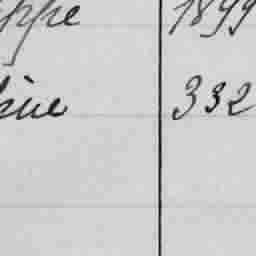 ppe 1899
ine 332